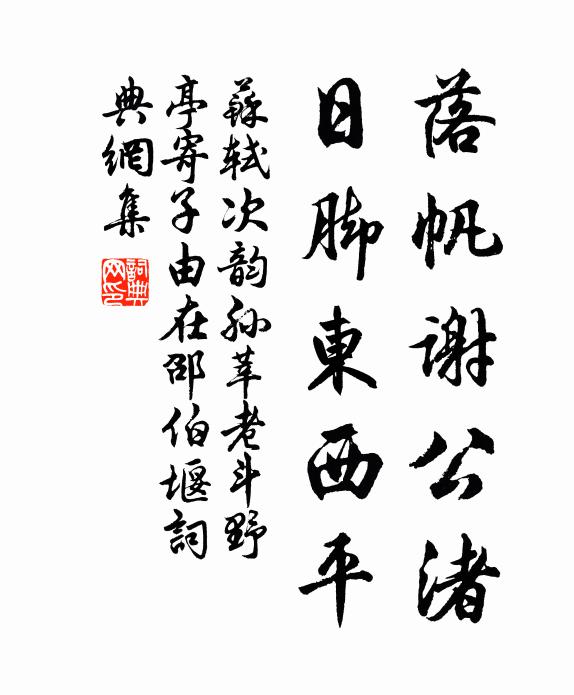 落帆謝公渚
日脚東西平
蘇軾次韵孫莘老斗野
亭寄子由在邵伯堰詞
典網集
詞典
网印